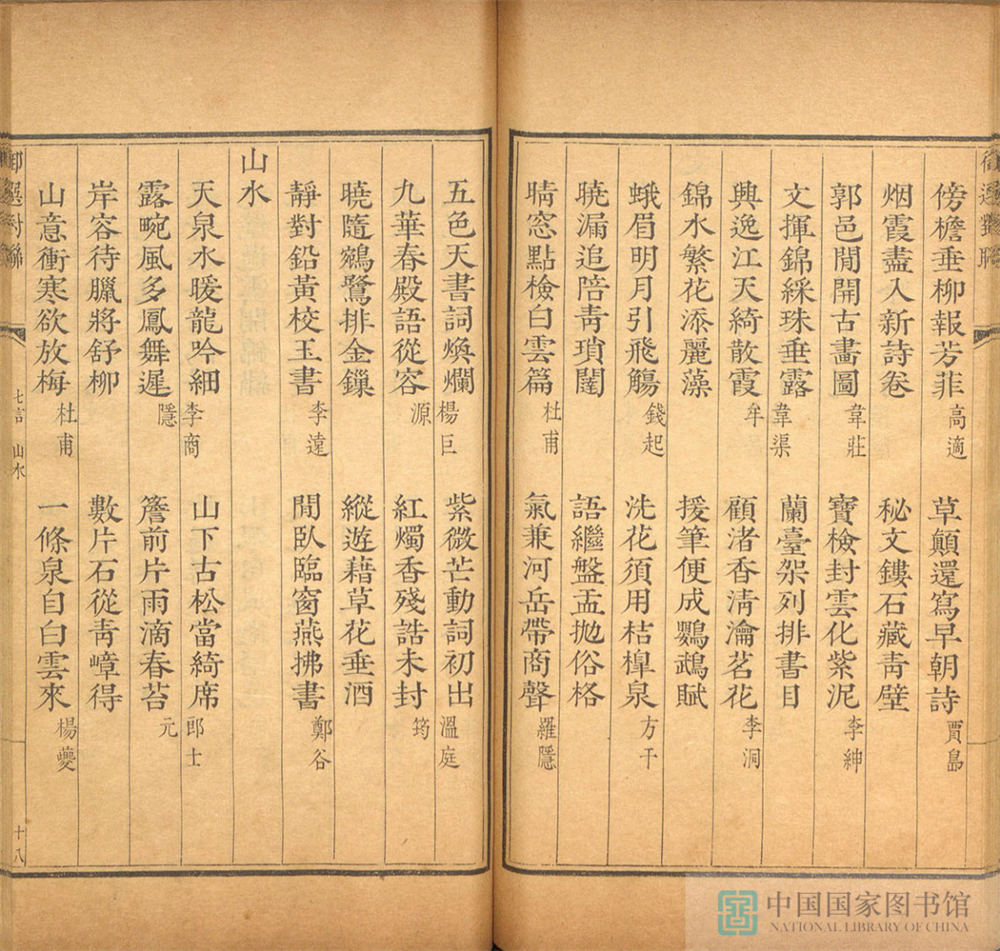 傍檐垂柳報芳菲 高適 草顛還寫早朝詩 賈島
烟霞盡入新詩卷 秘文鏤石藏靑壁
郭邑閒開古畵圖 韋莊 寶檢封雲化紫泥 李紳
文揮錦綵珠垂露 韋渠 蘭臺架列排書目
興逸江天綺散霞 牟 顧渚香淸瀹茗花 李洞
錦水繁花添麗藻 援筆便成鸚鵡賦
蛾眉明月引飛觴 錢起 洗花須用桔槹泉 方干
曉漏追陪靑瑣闥 語繼盤盂抛俗格
晴窓點檢白雲篇 杜甫 氣兼河岳帶商聲 羅隱
五色天書詞煥爛 楊巨 紫微芒動詞初出 溫庭
九華春殿語從容 源 紅燭香殘誥未封 筠
曉隨鵷鷺排金鏁 縱遊藉草花垂酒
靜對鉛黃校玉書 李遠 閒臥臨窗燕拂書 鄭谷
山水
天泉水暖龍吟細 李商 山下古松當綺席 郎士
露畹風多鳳舞遲 隱 簷前片雨滴春苔 元
岸容待臘將舒柳 數片石從靑嶂得
山意衝寒欲放梅 杜甫 一條泉自白雲來 楊夔
御選對聯
七言 山水
十八
中国国家图书馆
NATIONAL LIBRARY OF CHINA